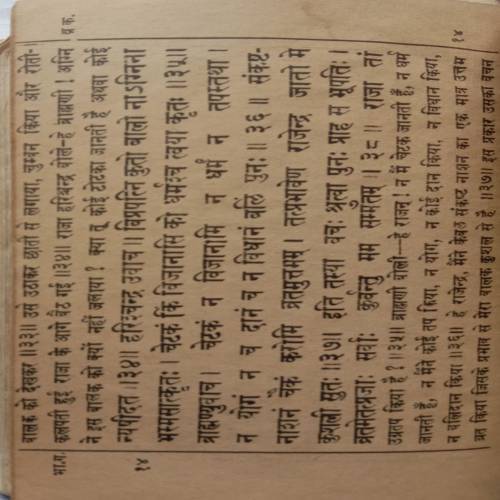 भा.ग.
१४
बालक को देखकर ॥३३॥ उसे उठाकर छाती से लगाया, चुम्बन किया और रोती-
कलपती हुई राजा के आगे बैठ गई ॥३४॥ राजा हरिश्चन्द्र बोले-हे ब्राह्मणी ! अग्नि
ने इस बालक को क्यों नहीं जलाया ? क्या तू कोई टोटका जानती है अथवा कोई
न्यषीदत ॥३४॥ हरिश्चन्द्र उवाच ॥ विप्रपत्नि कुतो बालो नाऽग्निना
भस्मसात्कृतः । चेटकं किं विजानासि को धर्मश्च त्वया कृतः ॥३५॥
ब्राह्मण्युवाच । चेटकं न विजानामि न धर्मं न तपस्तथा ।
न योगं न च दानं च न विधानं बलिं पुनः ॥ ३६ ॥ संकष्ट-
नाशनं चैकं करोमि व्रतमुत्तमम् । तत्प्रभावेण राजेन्द्र जातो मे
कुशली सुतः ॥३७॥ इति तस्या वचः श्रुत्वा पुनः प्राह स भूपतिः ।
व्रतमेतत्प्रजाः सर्वाः कुर्वन्तु मम सम्मतम् ॥ ३८॥ राजा तां
उग्रतप किया है ? ॥३५॥ ब्राह्मणी बोली—हे राजन् ! न मैं चेटक जानती हूँ, न धर्म
जानती हूँ, न मैंने कोई तप किया, न योग, न कोई दान किया, न विधान किया,
न बलिदान किया ॥३६॥ हे राजेन्द्र, मैंने केवल संकष्ट नाशन का एक मात्र उत्तम
व्रत किया जिसके प्रभाव से मेरा बालक कुशल से है ॥३७॥ इस प्रकार उसका वचन
१४